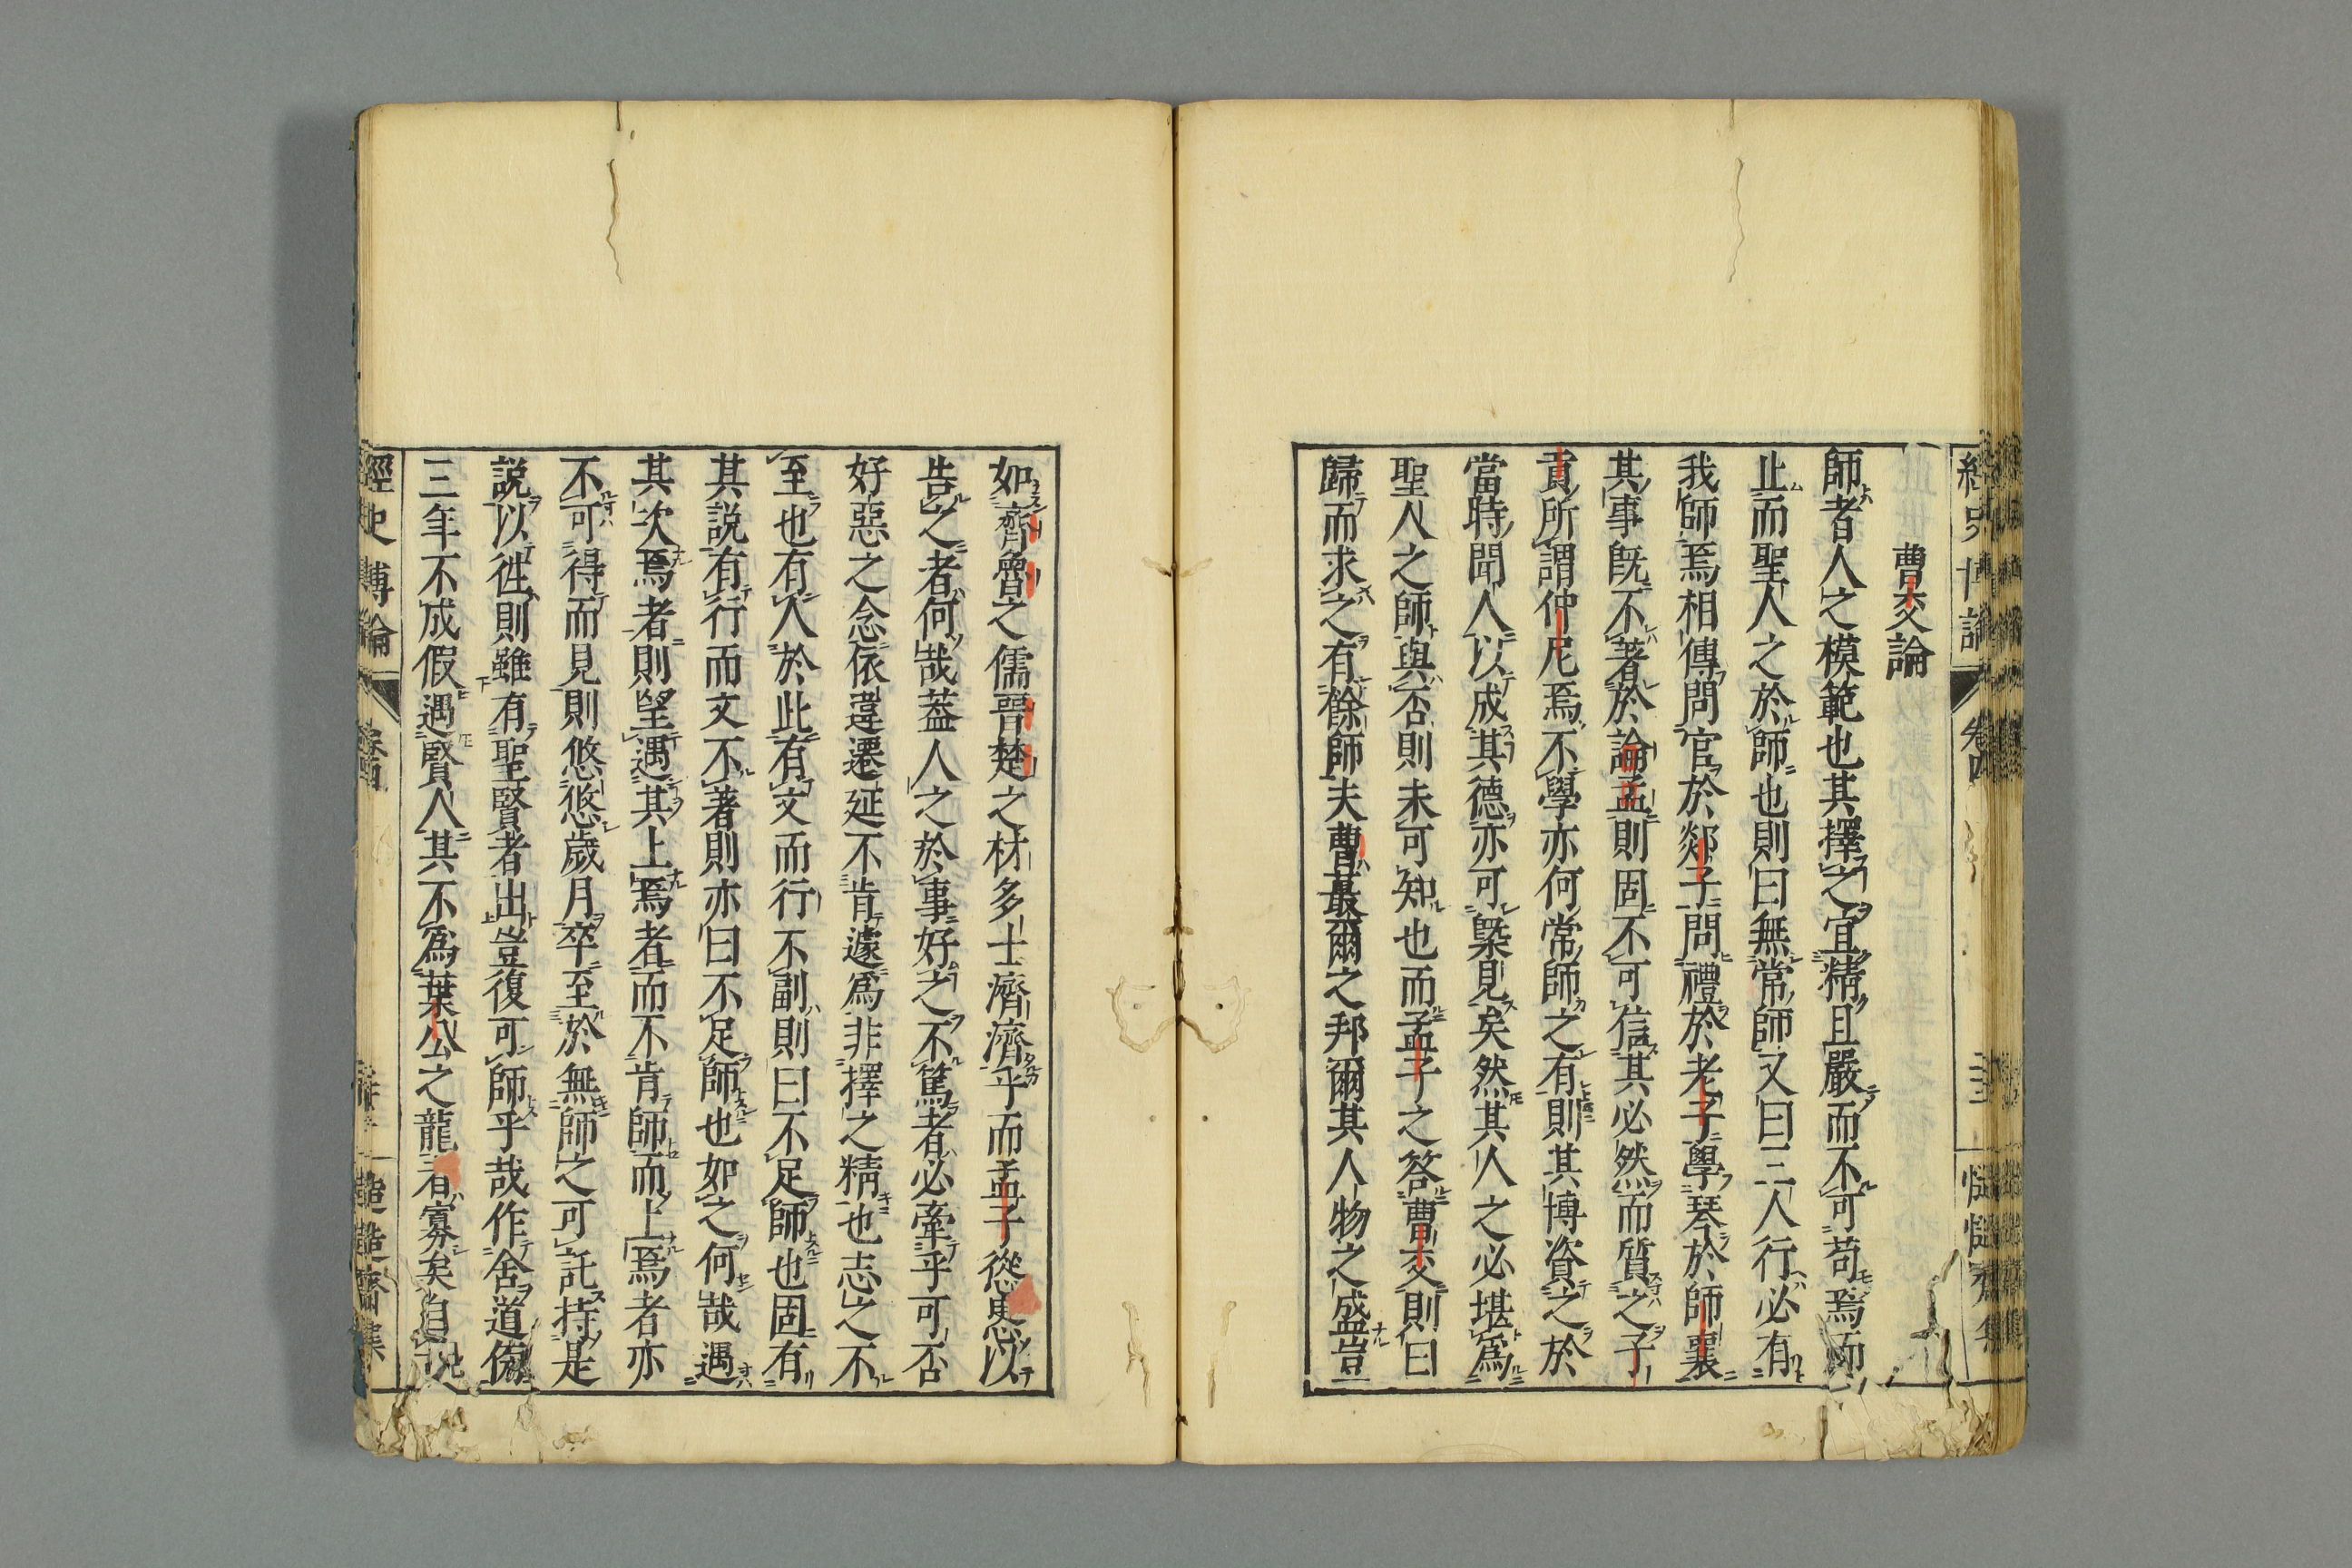 曹交論
師者人之模範也其擇之宜精且嚴而不可苟焉而
止而聖人之於師也則曰無常師又曰三人行必有
我師焉相傳問官於郯子問禮於老子學琴於師襄
其事既不著於論孟則固不可信其必然而質之子
貢所謂仲尼焉不學亦何常師之有則其博資之於
當時聞人以成其德亦可槩見矣然其人之必堪爲
聖人之師與否則未可知也而孟子之答曹交則曰
歸而求之有餘師夫曹蕞爾之邦爾其人物之盛豈
如齊魯之儒晉楚之材多士濟濟乎而孟子從臾以
告之者何哉葢人之於事好之不篤者必牽乎可否
好惡之念依違遷延不肯遽爲非擇之精也志之不
至也有人於此有文而行不副則曰不足師也固有
其説有行而文不著則亦曰不足師也如之何哉遇
其次焉者則望遇其上焉者而不肯師而上焉者亦
不可得而見則悠悠歲月卒至於無師之可託持是
説以徃則雖有聖賢者出豈復可師乎哉作舍道傍
三年不成假遇賢人其不爲葉公之龍者寡矣自
經史博論
卷四